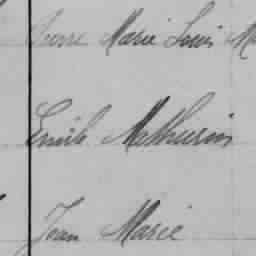 Pierre Marie Louis
Emile Mathurin
Jean Marie